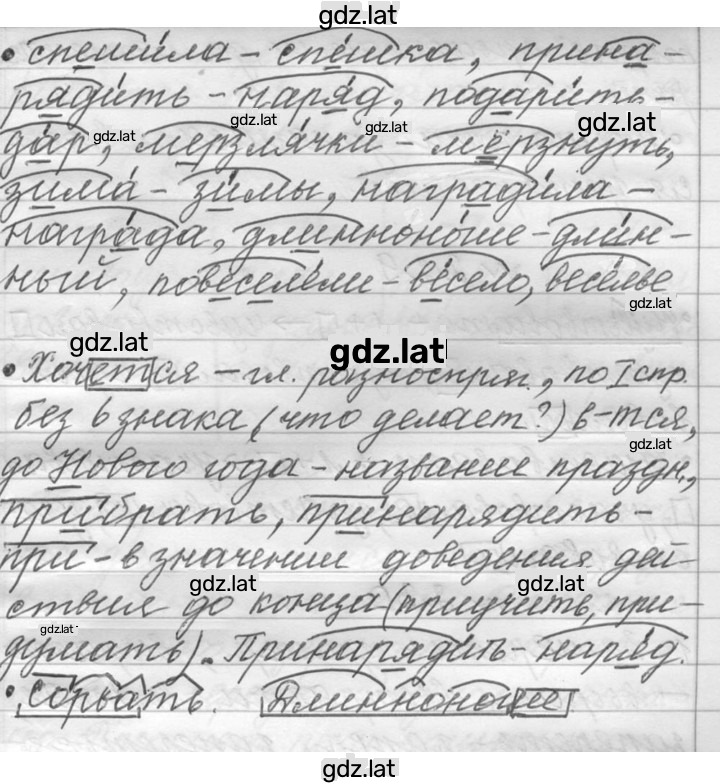 gdz.lat
• спеши́ла – спе́шка, прина-
ряди́ть – наря́д, подари́ть –
да́р, мерзля́чки – мёрзнуть,
зима́ – зи́мы, награди́ла –
награ́да, длинноно́гие – дли́н-
ный, повеселе́ли – ве́село, весе́лье
gdz.lat
gdz.lat
gdz.lat
gdz.lat
gdz.lat
gdz.lat
gdz.lat
• Хочется – гл. разноспряг., по I спр.
без ь знака (что делает?) в -тся,
gdz.lat
до Нового года – название праздн.,
прибрать, принарядить –
при – в значении доведения дей-
gdz.lat
gdz.lat
ствия до конца (приучить, при-
gdz.lat
думать). Принарядить – наря́д.
• сорвать. Длинноногие
gdz.lat